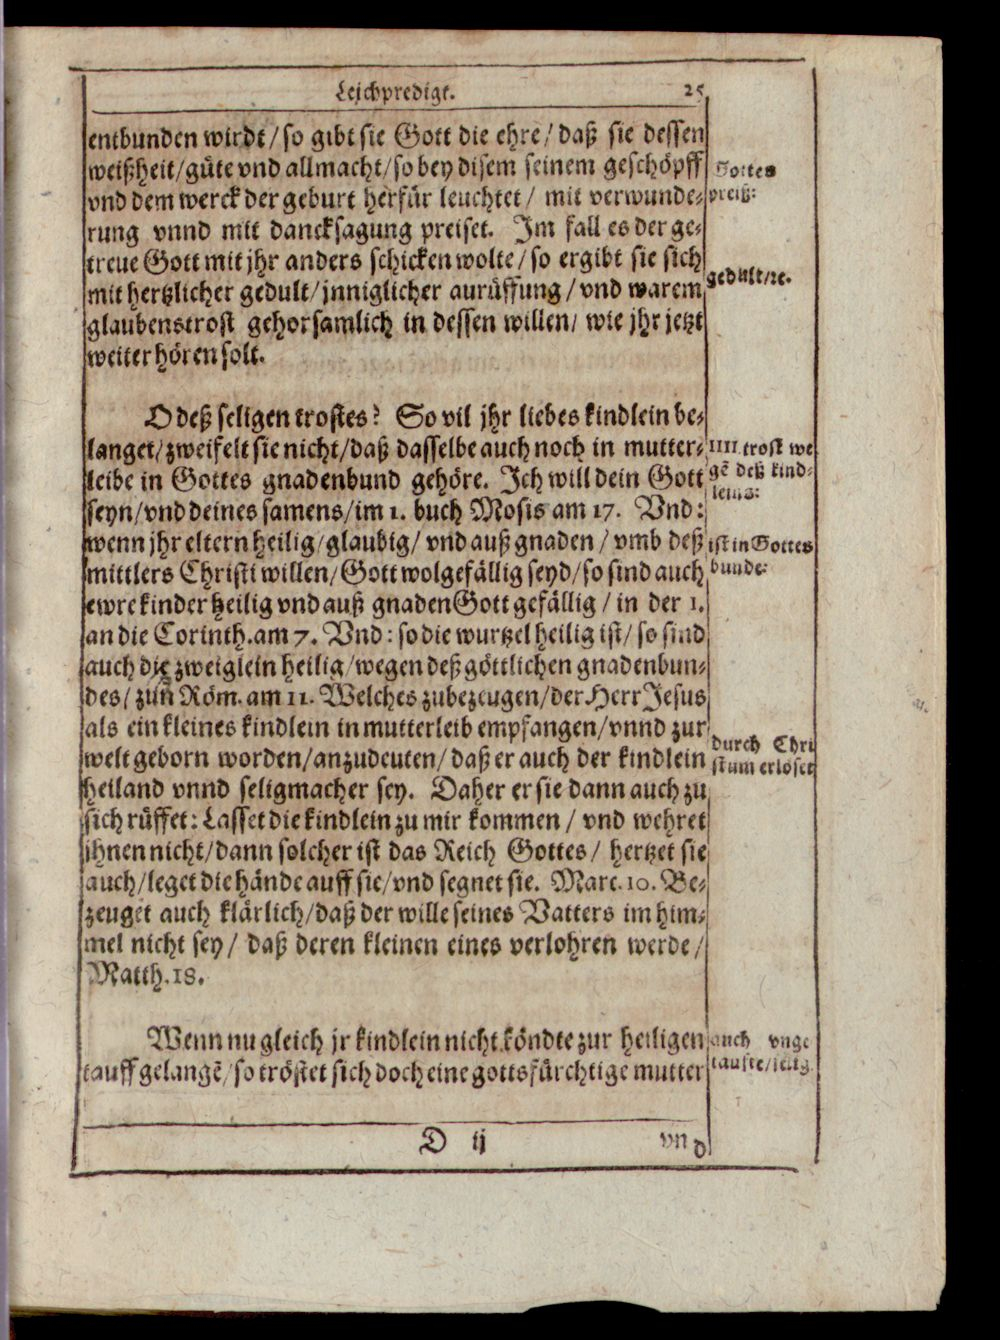 Leichpredigt. 25
entbunden wirdt/so gibt sie Gott die ehre/daß sie dessen
weißheit/güte vnd allmacht/so bey disem seinem geschöpff
vnd dem werck der geburt herfür leuchtet/ mit verwunde-
rung vnnd mit dancksagung preiset. Im fall es der ge-
treue Gott mit jhr anders schicken wolte/so ergibt sie sich
mit hertzlicher gedult/jnniglicher anrüffung/vnd warem
glaubenstrost gehorsamlich in dessen willen/ wie jhr jetzt
weiter hören solt.
Gottes
preiß:
gedult/ꝛc.
O deß seligen trostes? So vil jhr liebes kindlein be-
langet/zweifelt sie nicht/daß dasselbe auch noch in mutter-
leibe in Gottes gnadenbund gehöre. Ich will dein Gott
seyn/vnd deines samens/im 1. buch Mosis am 17. Vnd:
wenn jhr eltern heilig/glaubig/ vnd auß gnaden/ vmb deß
mittlers Christi willen/Gott wolgefällig seyd/so sind auch
ewre kinder heilig vnd auß gnaden Gott gefällig/ in der 1.
an die Corinth. am 7. Vnd: so die wurtzel heilig ist/ so sind
auch die zweiglein heilig/wegen deß göttlichen gnadenbun-
des/ zun Röm. am 11. Welches zubezeugen/der Herr Jesus
als ein kleines kindlein in mutterleib empfangen/vnnd zur
welt geborn worden/anzudeuten/daß er auch der kindlein
heiland vnnd seligmacher sey. Daher er sie dann auch zu
sich rüffet: Lasset die kindlein zu mir kommen/ vnd wehret
ihnen nicht/dann solcher ist das Reich Gottes/ hertzet sie
auch/leget die hände auff sie/vnd segnet sie. Marc. 10. Be-
zeuget auch klärlich/daß der wille seines Vatters im him-
mel nicht sey/ daß deren kleinen eines verlohren werde/
Matth. 18.
IIII. trost we
gẽ deß kind-
leins:
ist in Gottes
bunde:
durch Chri
stum erlöset
Wenn nu gleich jr kindlein nicht köndte zur heiligen
tauff gelangẽ/so tröstet sich doch eine gottsfürchtige mutter
auch vnge
taufte/selig
D ij
vnd